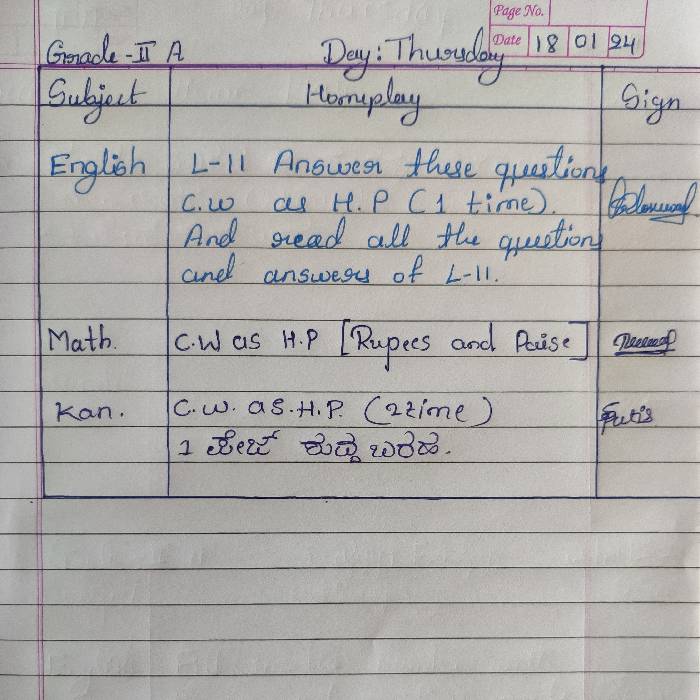 Page No.
Date 18 01 24
Grade - II A Day: Thursday
Subject Homeplay Sign
English L-11 Answer these questions
C.W as H.P (1 time).
And read all the questions
and answers of L-11.
Math. C.W as H.P [Rupees and Paise]
Kan. C.W. as.H.P. (2time)
1 ಪೇಜ್ ಶುದ್ಧ ಬರಹ.